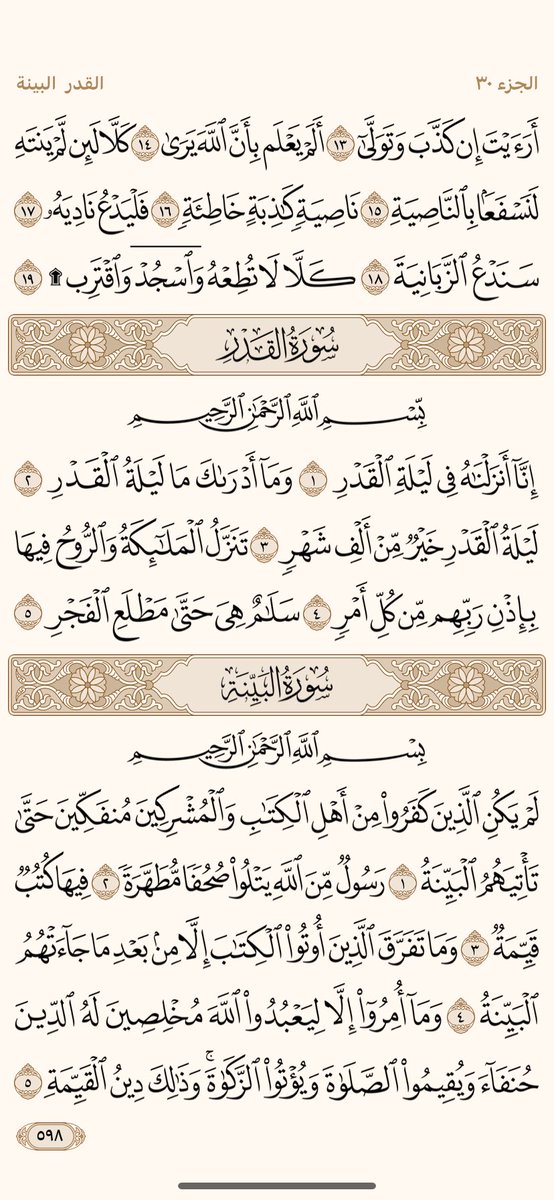 الجزء ٣٠
القدر البينة
أَرَءَيْتَ إِن كَذَّبَ وَتَوَلَّىٰٓ ١٣ أَلَمْ يَعْلَم بِأَنَّ ٱللَّهَ يَرَىٰ ١٤ كَلَّا لَئِن لَّمْ يَنتَهِ
لَنَسْفَعًۢا بِٱلنَّاصِيَةِ ١٥ نَاصِيَةٍ كَٰذِبَةٍ خَاطِئَةٍ ١٦ فَلْيَدْعُ نَادِيَهُۥ ١٧
سَنَدْعُ ٱلزَّبَانِيَةَ ١٨ كَلَّا لَا تُطِعْهُ وَٱسْجُدْ وَٱقْتَرِب ۩ ١٩
سُورَةُ القَدْرِ
بِّسْمِ ٱللَّهِ ٱلرَّحْمَٰنِ ٱلرَّحِيمِ
إِنَّآ أَنزَلْنَٰهُ فِى لَيْلَةِ ٱلْقَدْرِ ١ وَمَآ أَدْرَىٰكَ مَا لَيْلَةُ ٱلْقَدْرِ ٢
لَيْلَةُ ٱلْقَدْرِ خَيْرٌ مِّنْ أَلْفِ شَهْرٍ ٣ تَنَزَّلُ ٱلْمَلَٰٓئِكَةُ وَٱلرُّوحُ فِيهَا
بِإِذْنِ رَبِّهِم مِّن كُلِّ أَمْرٍ ٤ سَلَٰمٌ هِىَ حَتَّىٰ مَطْلَعِ ٱلْفَجْرِ ٥
سُورَةُ البَيِّنَةِ
بِسْمِ ٱللَّهِ ٱلرَّحْمَٰنِ ٱلرَّحِيمِ
لَمْ يَكُنِ ٱلَّذِينَ كَفَرُوا۟ مِنْ أَهْلِ ٱلْكِتَٰبِ وَٱلْمُشْرِكِينَ مُنفَكِّينَ حَتَّىٰ
تَأْتِيَهُمُ ٱلْبَيِّنَةُ ١ رَسُولٌ مِّنَ ٱللَّهِ يَتْلُوا۟ صُحُفًا مُّطَهَّرَةً ٢ فِيهَا كُتُبٌ
قَيِّمَةٌ ٣ وَمَا تَفَرَّقَ ٱلَّذِينَ أُوتُوا۟ ٱلْكِتَٰبَ إِلَّا مِنۢ بَعْدِ مَا جَآءَتْهُمُ
ٱلْبَيِّنَةُ ٤ وَمَآ أُمِرُوٓا۟ إِلَّا لِيَعْبُدُوا۟ ٱللَّهَ مُخْلِصِينَ لَهُ ٱلدِّينَ
حُنَفَآءَ وَيُقِيمُوا۟ ٱلصَّلَوٰةَ وَيُؤْتُوا۟ ٱلزَّكَوٰةَ ۚ وَذَٰلِكَ دِينُ ٱلْقَيِّمَةِ ٥
٥٩٨